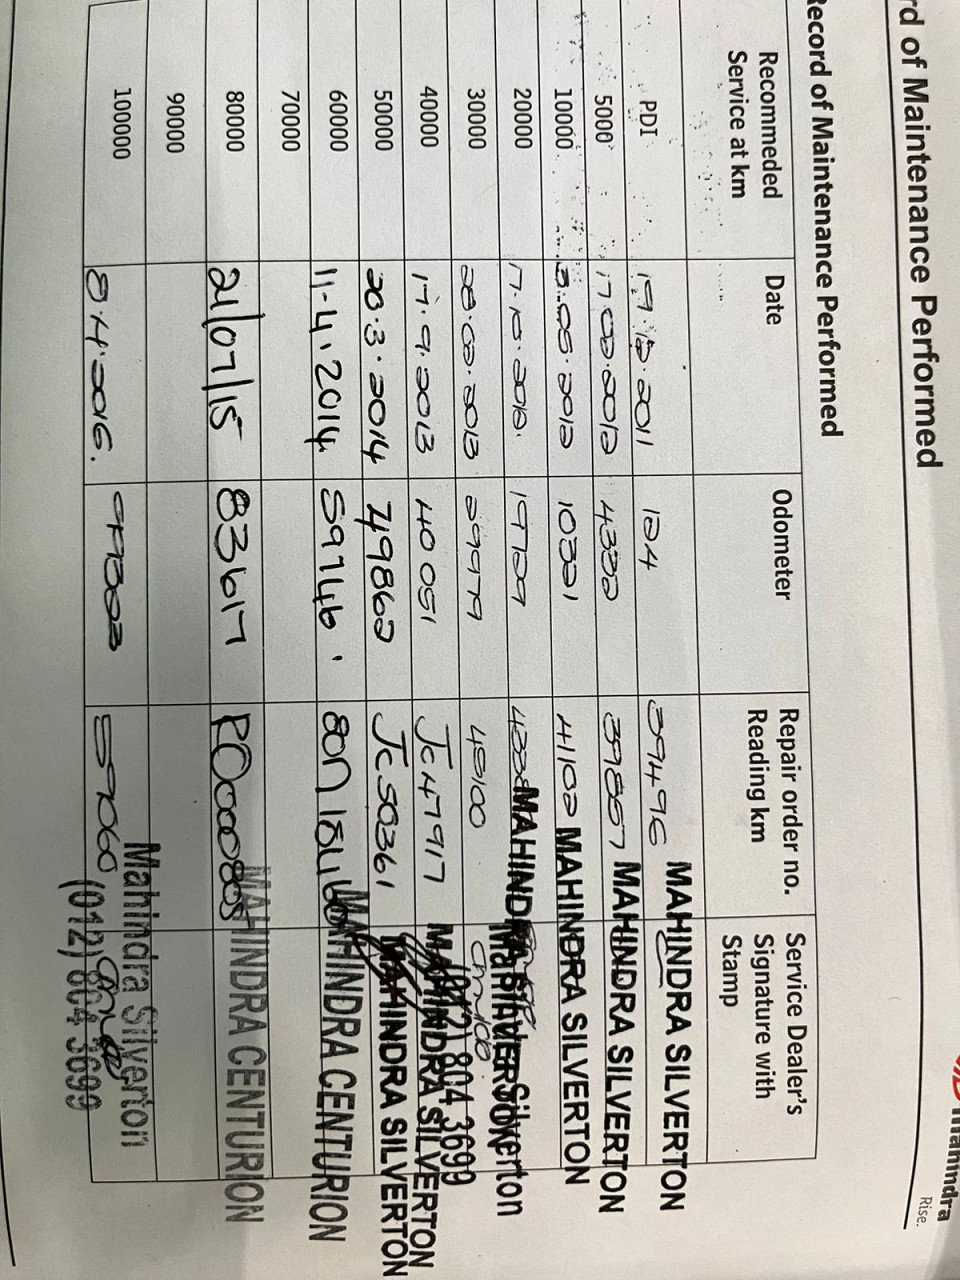 rd of Maintenance Performed
mahindra
Rise.
Record of Maintenance Performed
Recommeded Service at km Date Odometer Repair order no. Reading km Service Dealer's Signature with Stamp
PDI 19.12.2011 124 39496 MAHINDRA SILVERTON
5000 17.02.2012 4332 39857 MAHINDRA SILVERTON
10000 .05.2012 10321 41102 MAHINDRA SILVERTON
20000 17.10.2012. 19729 MAHINDRA SILVERTON
30000 28.02.2013 29979 45100 Mahindra Silverton
(012) 804 3699
40000 17.9.2013 40051 JC47917 MAHINDRA SILVERTON
50000 20.3.2014 49862 JC50361 MAHINDRA SILVERTON
60000 11.4.2014 59746 MAHINDRA CENTURION
70000
80000 21/07/15 83617 MAHINDRA CENTURION
90000
100000 8.4.2016. 99303 59060 Mahindra Silverton
(012) 804 3699